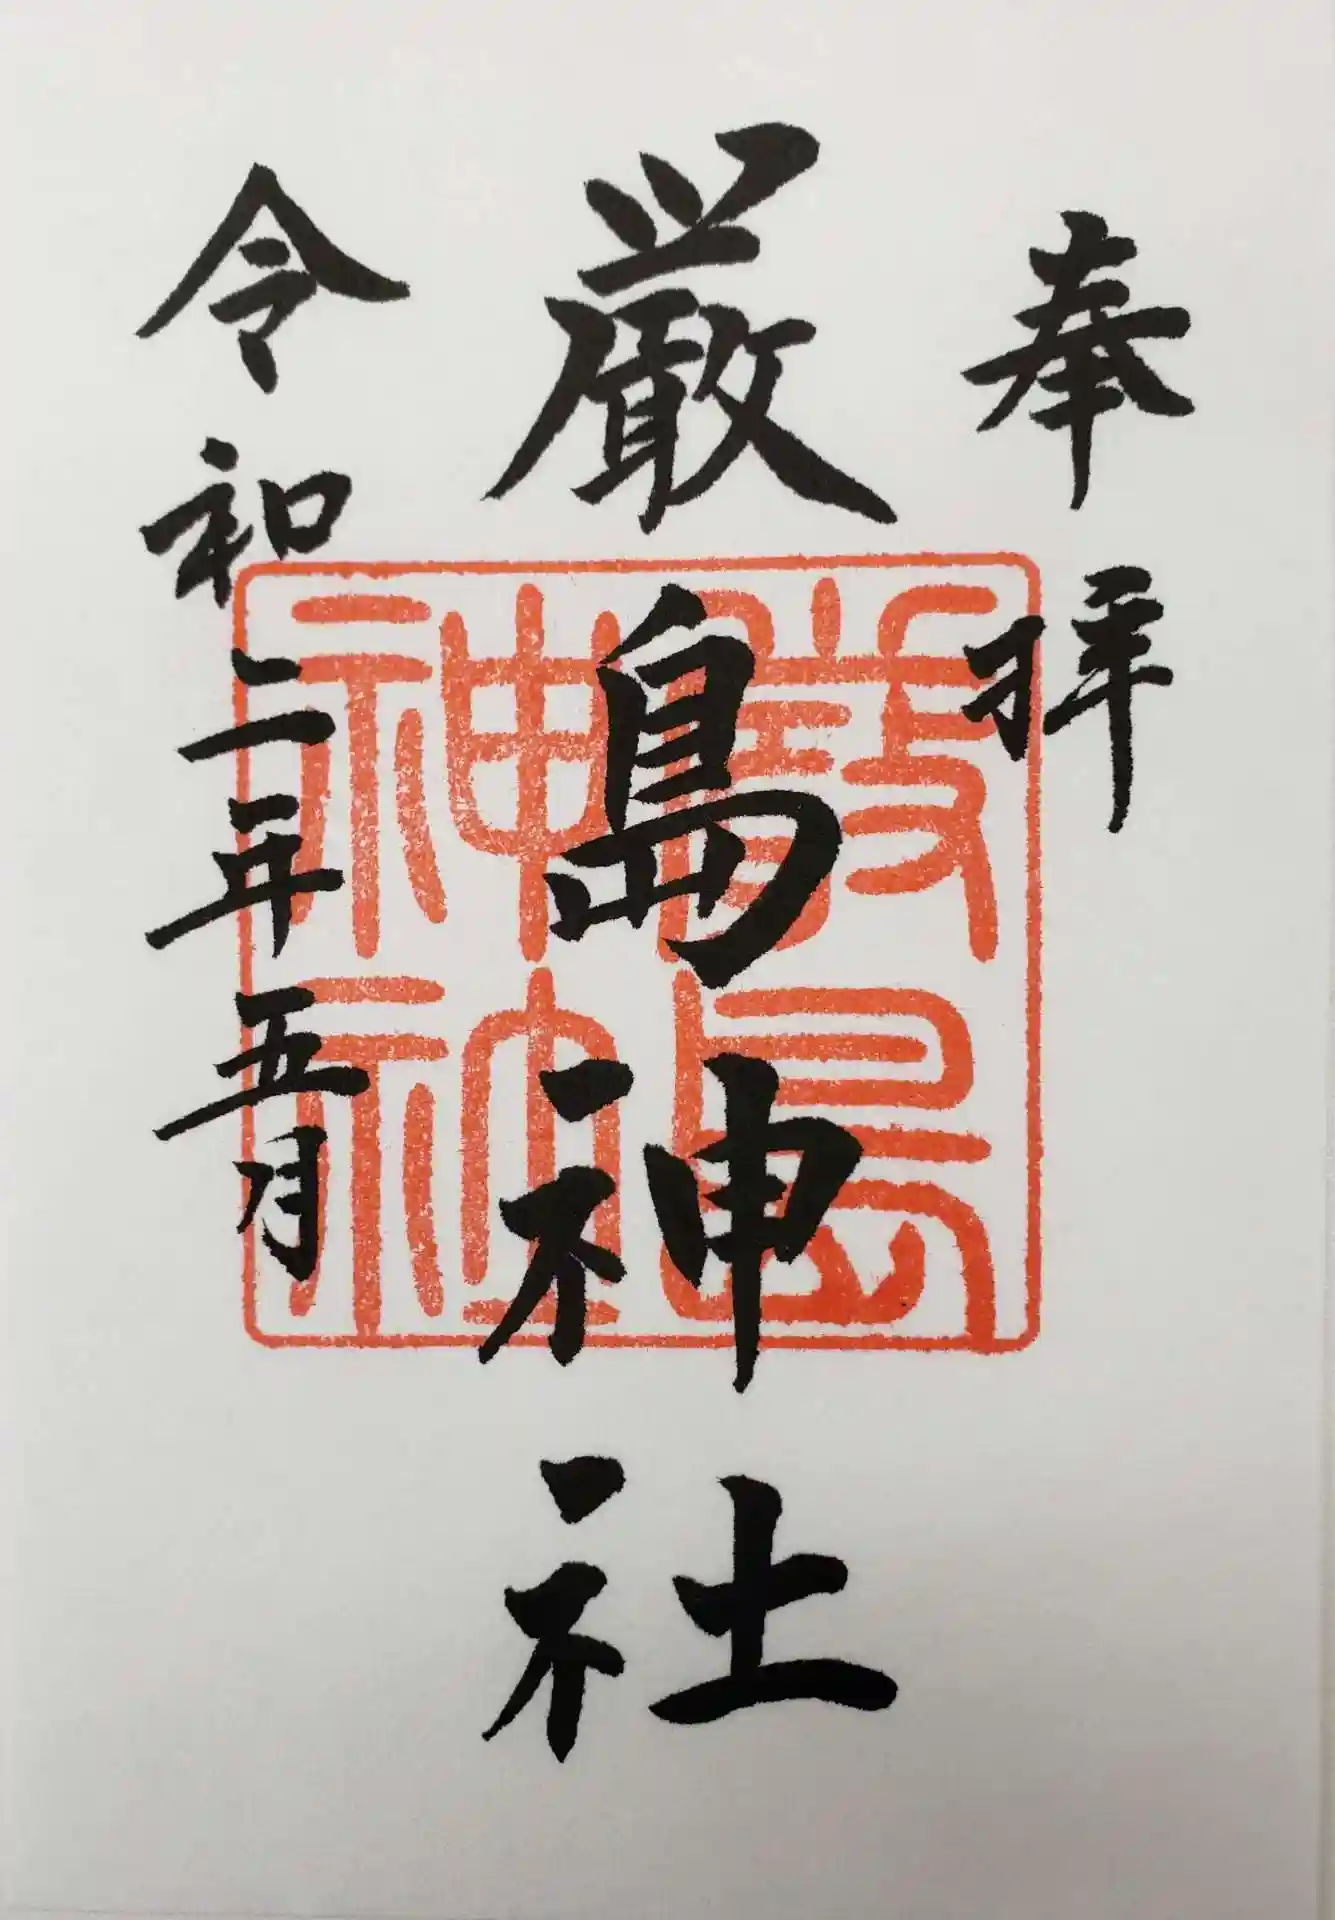 奉拝
厳島神社
令和二年五月
厳島
神社